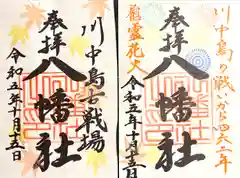 川中島古戦場
奉拝
八幡社
令和五年十月十五日
川中島の戦いから四六二年
奉拝
八幡社
龍霊花火
令和五年十月十五日